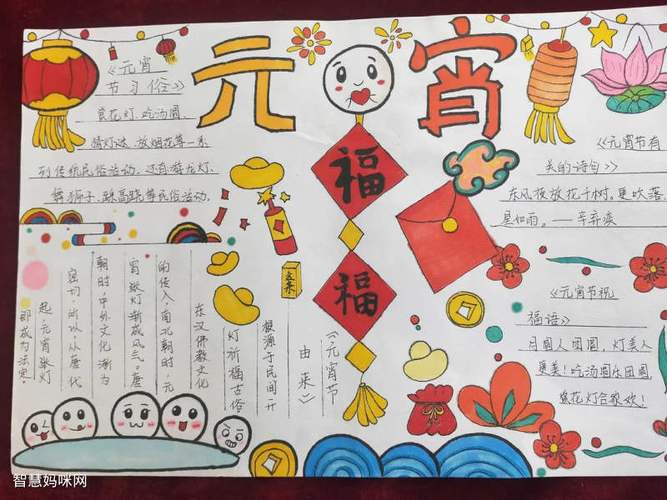 元
宵
《元宵
节习俗》
赏花灯、吃汤圆、
猜灯谜、放烟花等一系
列传统民俗活动。还有游龙灯、
舞狮子、踩高跷等民俗活动。
福
福
《元宵节有
关的诗句》
东风夜放花千树。更吹落
星如雨。——辛弃疾
《元宵节祝
福语》
月圆人团圆，灯美人
更美！吃汤圆乐团圆
赏花灯合家欢！
《元宵节
由来》
根源于民间开
灯祈福古俗
在汉佛教文化
的传入，南北朝时，元
宵张灯渐成风气。唐
朝时，中外文化渐为
密切，所以，从唐代
起，元宵张灯
即成为法定。
智慧妈咪网